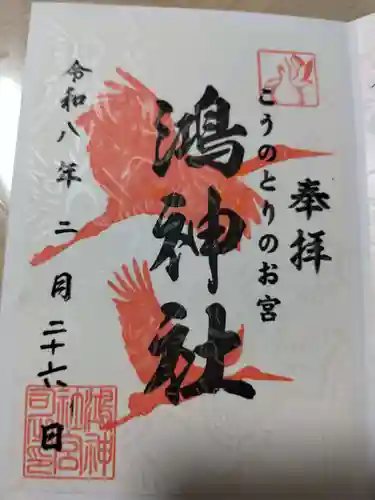 奉拝
こうのとりのお宮
鴻神社
令和八年二月二十六日
鴻神社宮司之印